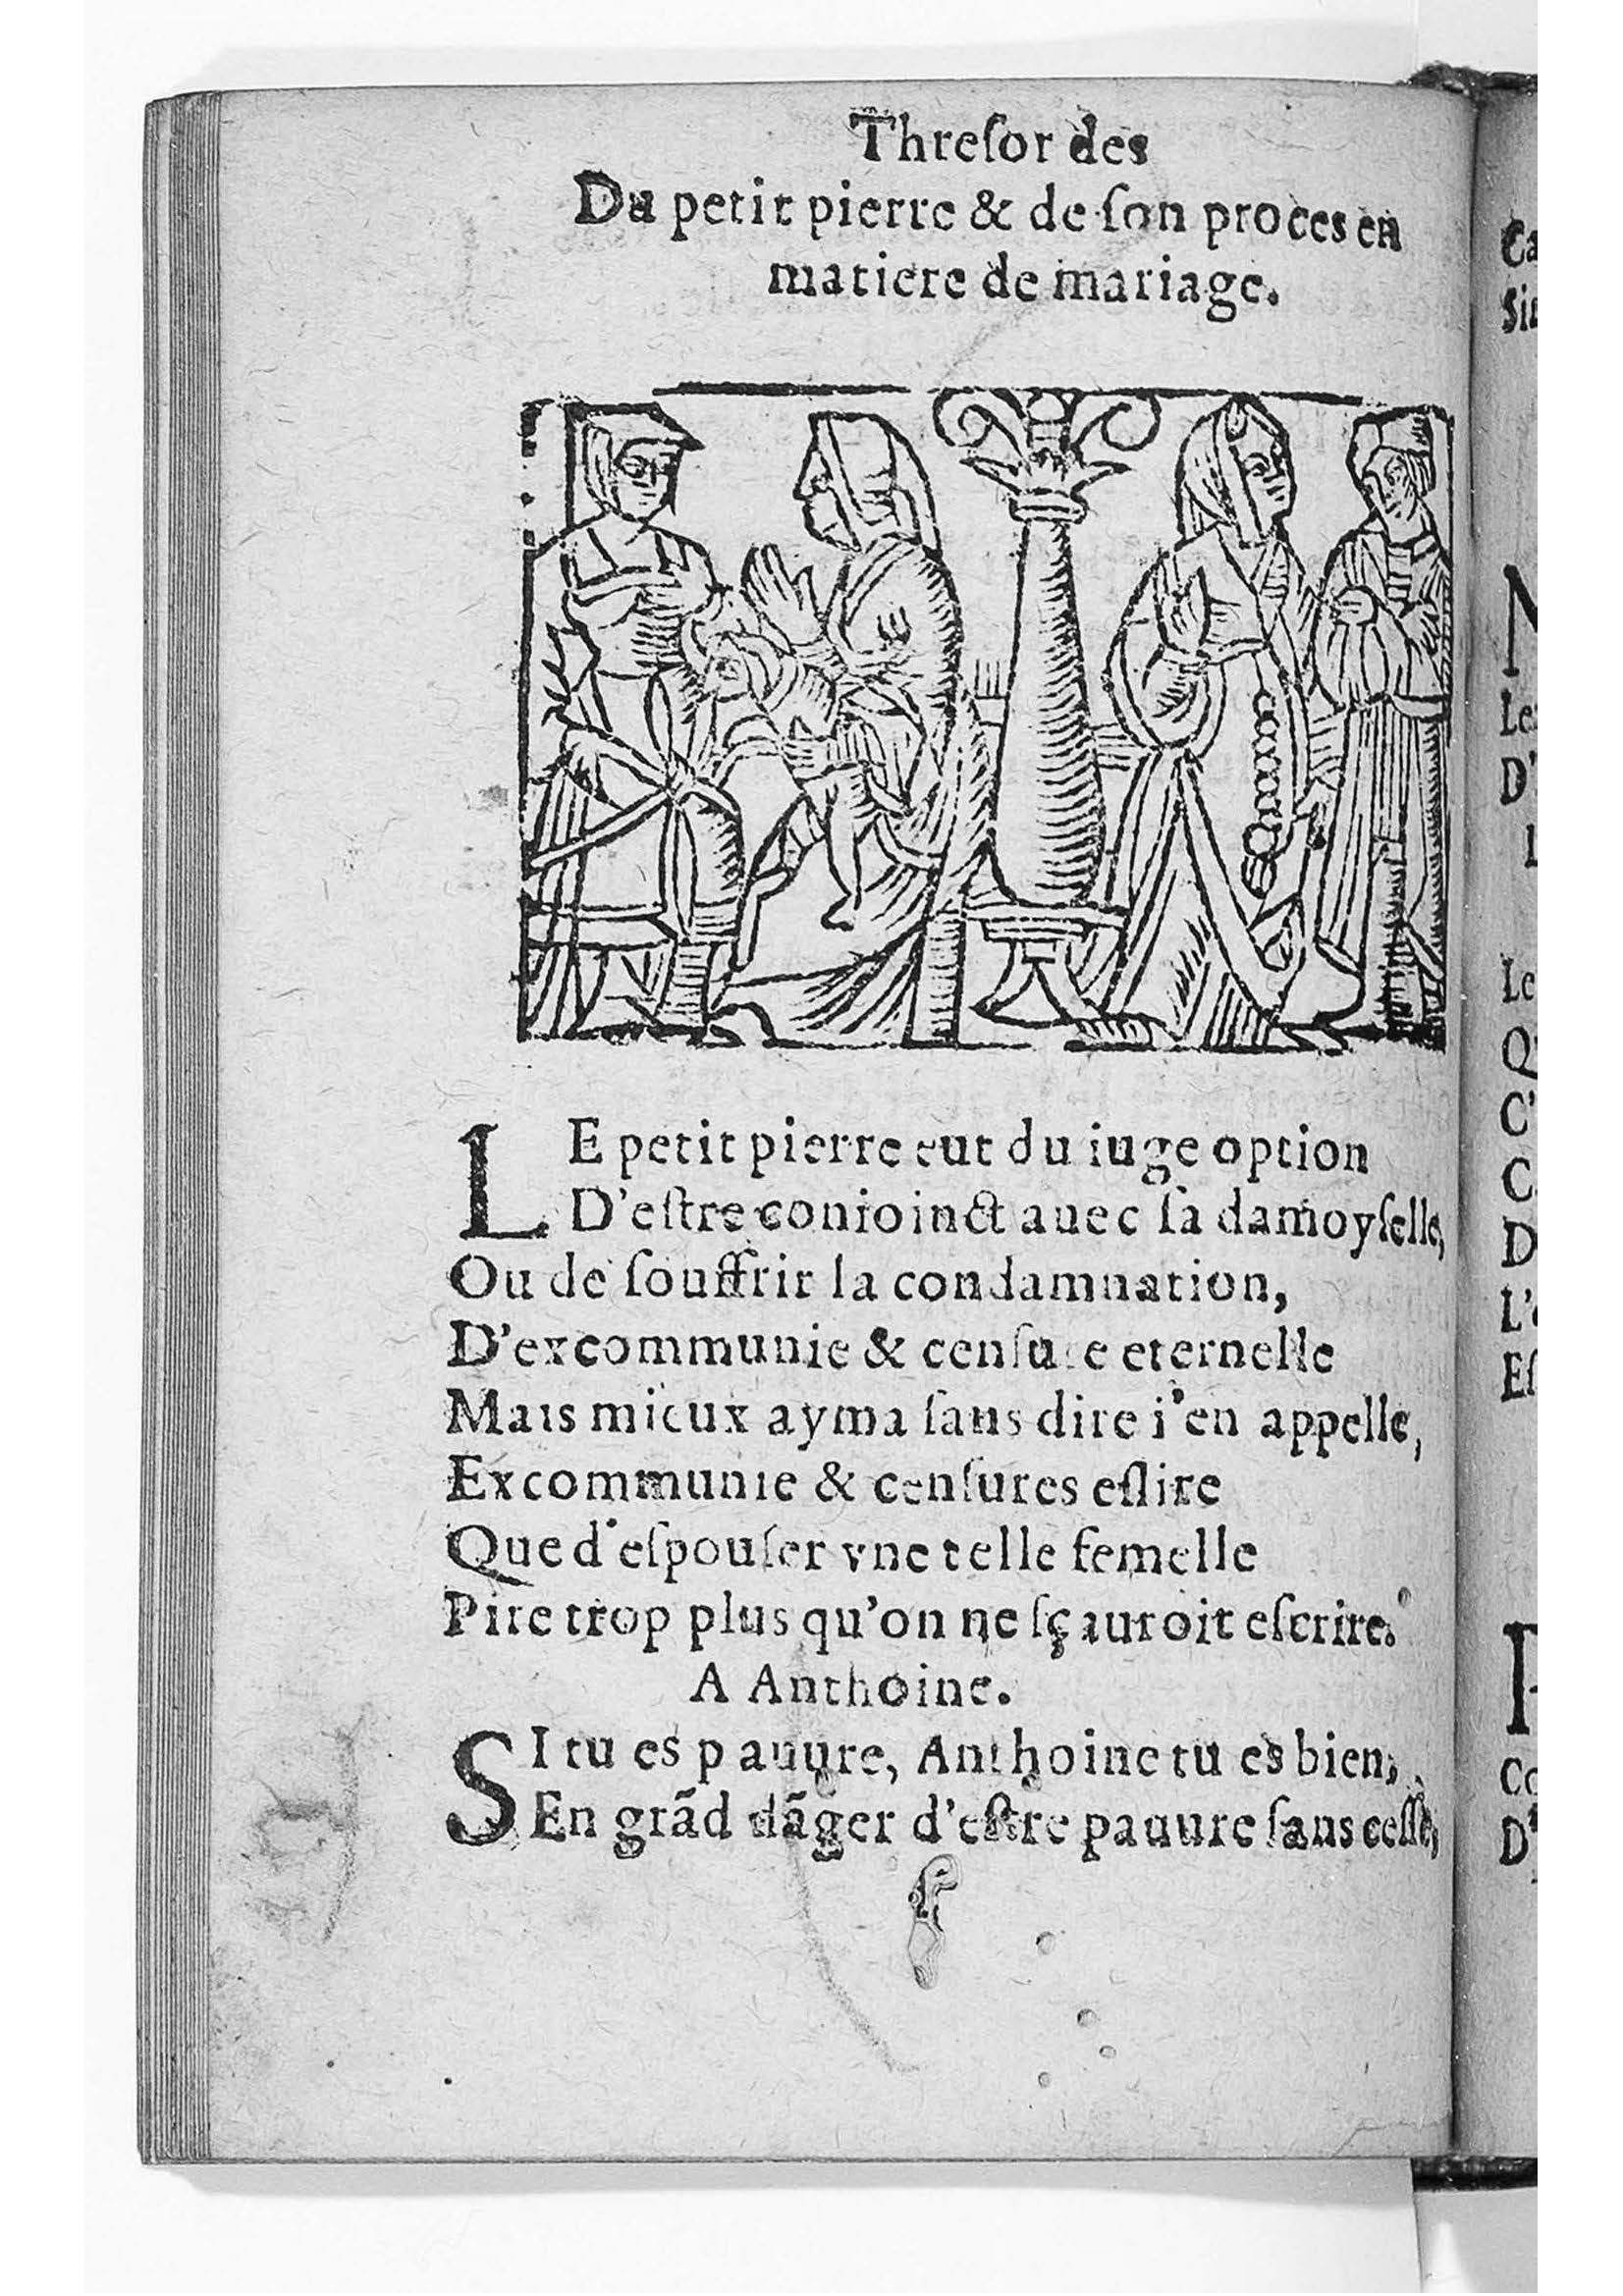 Threſor des
Du petit pierre & de ſon proces en
matiere de mariage.
LE petit pierre eut du iuge option
D'eſtre conioinct auec ſa damoyſelle,
Ou de ſouffrir la condamnation,
D'excommunie & cenſure eternelle
Mais mieux ayma ſans dire i'en appelle,
Excommunie & cenſures eſlire
Que d'eſpouſer vne telle femelle
Pire trop plus qu'on ne ſçauroit eſcrire.
A Anthoine.
SI tu es pauure, Anthoine tu es bien,
En grãd dãger d'eſtre pauure ſans ceſſe,
Sin
Le
D'
L
Le
Q
C'
C
D
L'
Eſ
D'